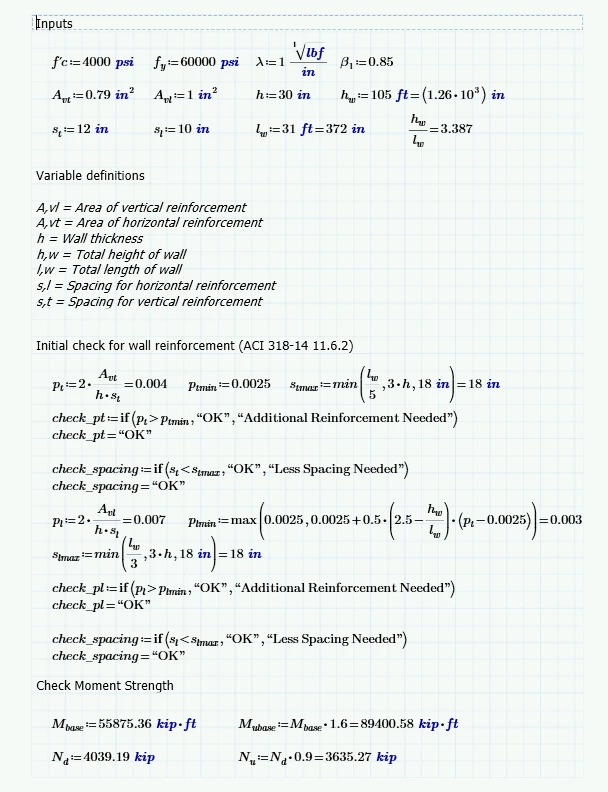 Inputs
f'c:=4000 psi f_y:=60000 psi λ:=1 ¹√lbf/in β_1:=0.85
A_vt:=0.79 in² A_vl:=1 in² h:=30 in h_w:=105 ft=(1.26•10³) in
s_t:=12 in s_l:=10 in l_w:=31 ft=372 in h_w/l_w=3.387
Variable definitions
A,vl = Area of vertical reinforcement
A,vt = Area of horizontal reinforcement
h = Wall thickness
h,w = Total height of wall
l,w = Total length of wall
s,l = Spacing for horizontal reinforcement
s,t = Spacing for vertical reinforcement
Initial check for wall reinforcement (ACI 318-14 11.6.2)
p_t:=2•A_vt/(h•s_t)=0.004 p_tmin:=0.0025 s_tmax:=min(l_w/5,3•h,18 in)=18 in
check_pt:=if(p_t>p_tmin,“OK”,“Additional Reinforcement Needed”)
check_pt=“OK”
check_spacing:=if(s_t<s_tmax,“OK”,“Less Spacing Needed”)
check_spacing=“OK”
p_l:=2•A_vl/(h•s_l)=0.007 p_lmin:=max(0.0025,0.0025+0.5•(2.5-h_w/l_w)•(p_t-0.0025))=0.003
s_lmax:=min(l_w/3,3•h,18 in)=18 in
check_pl:=if(p_l>p_lmin,“OK”,“Additional Reinforcement Needed”)
check_pl=“OK”
check_spacing:=if(s_l<s_lmax,“OK”,“Less Spacing Needed”)
check_spacing=“OK”
Check Moment Strength
M_base:=55875.36 kip•ft M_ubase:=M_base•1.6=89400.58 kip•ft
N_d:=4039.19 kip N_u:=N_d•0.9=3635.27 kip